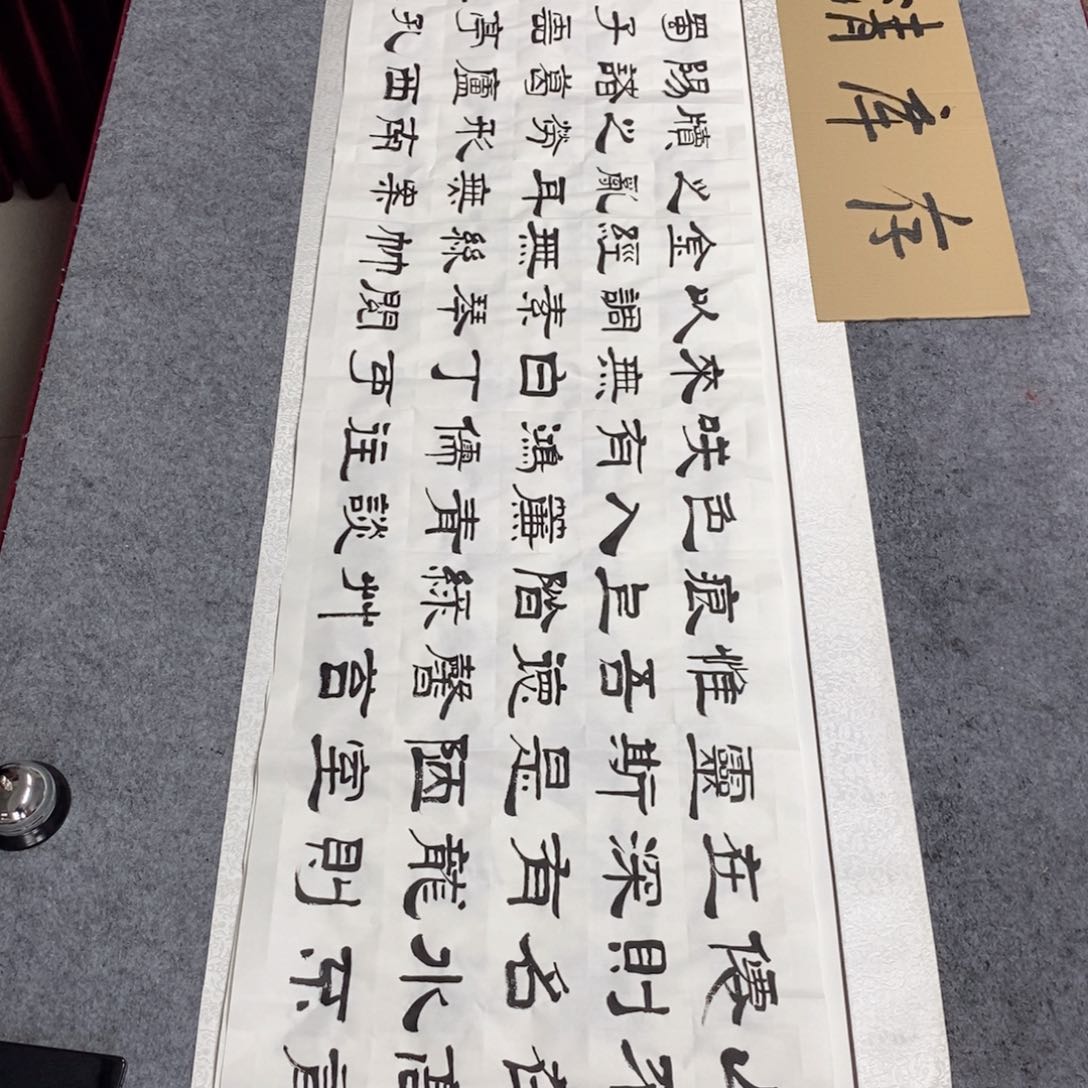 山不在高有
僊則名水不
在深有龍則
靈斯是陋室
惟吾德馨苔
痕上階綠艸
色入簾青談
咲有鴻儒往
來無白丁可
以調素琴閱
金經無絲竹
之亂耳無案
牘之勞形南
陽諸葛廬西
蜀子雲亭孔
清库存